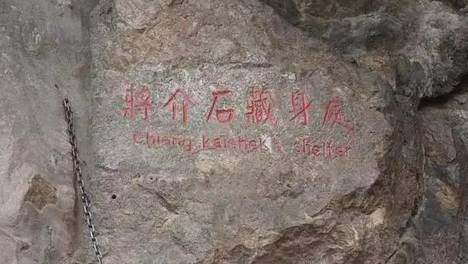 將介石藏身處
Chiang Kaishek's shelter